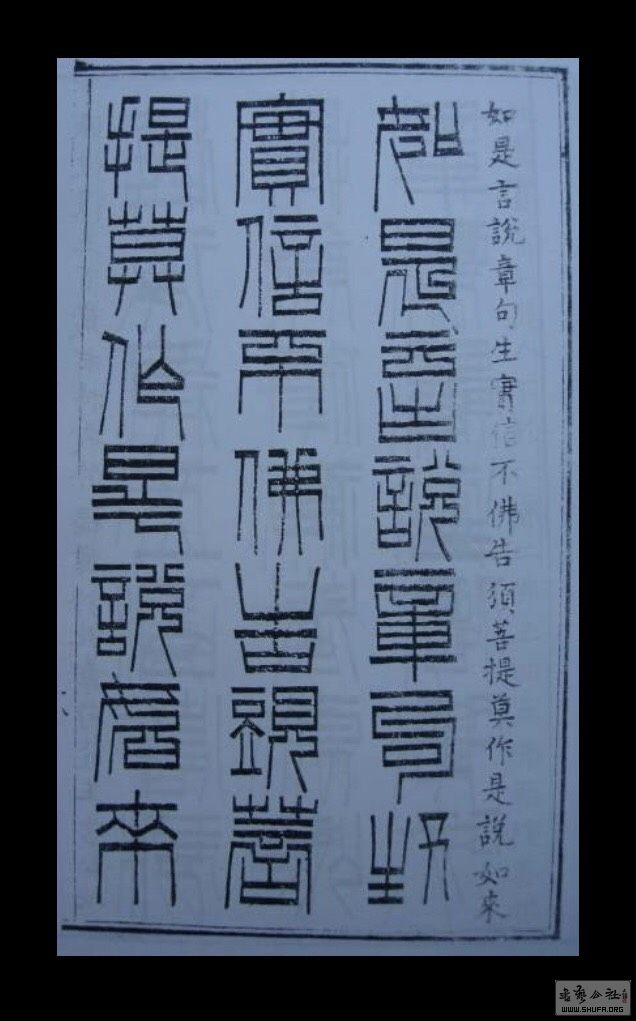 如是言說章句生實信不佛告須菩提莫作是說如來
如是言說章句生
實信不佛告須菩
提莫作是說如來
書藝公社
WWW.SHUFA.ORG